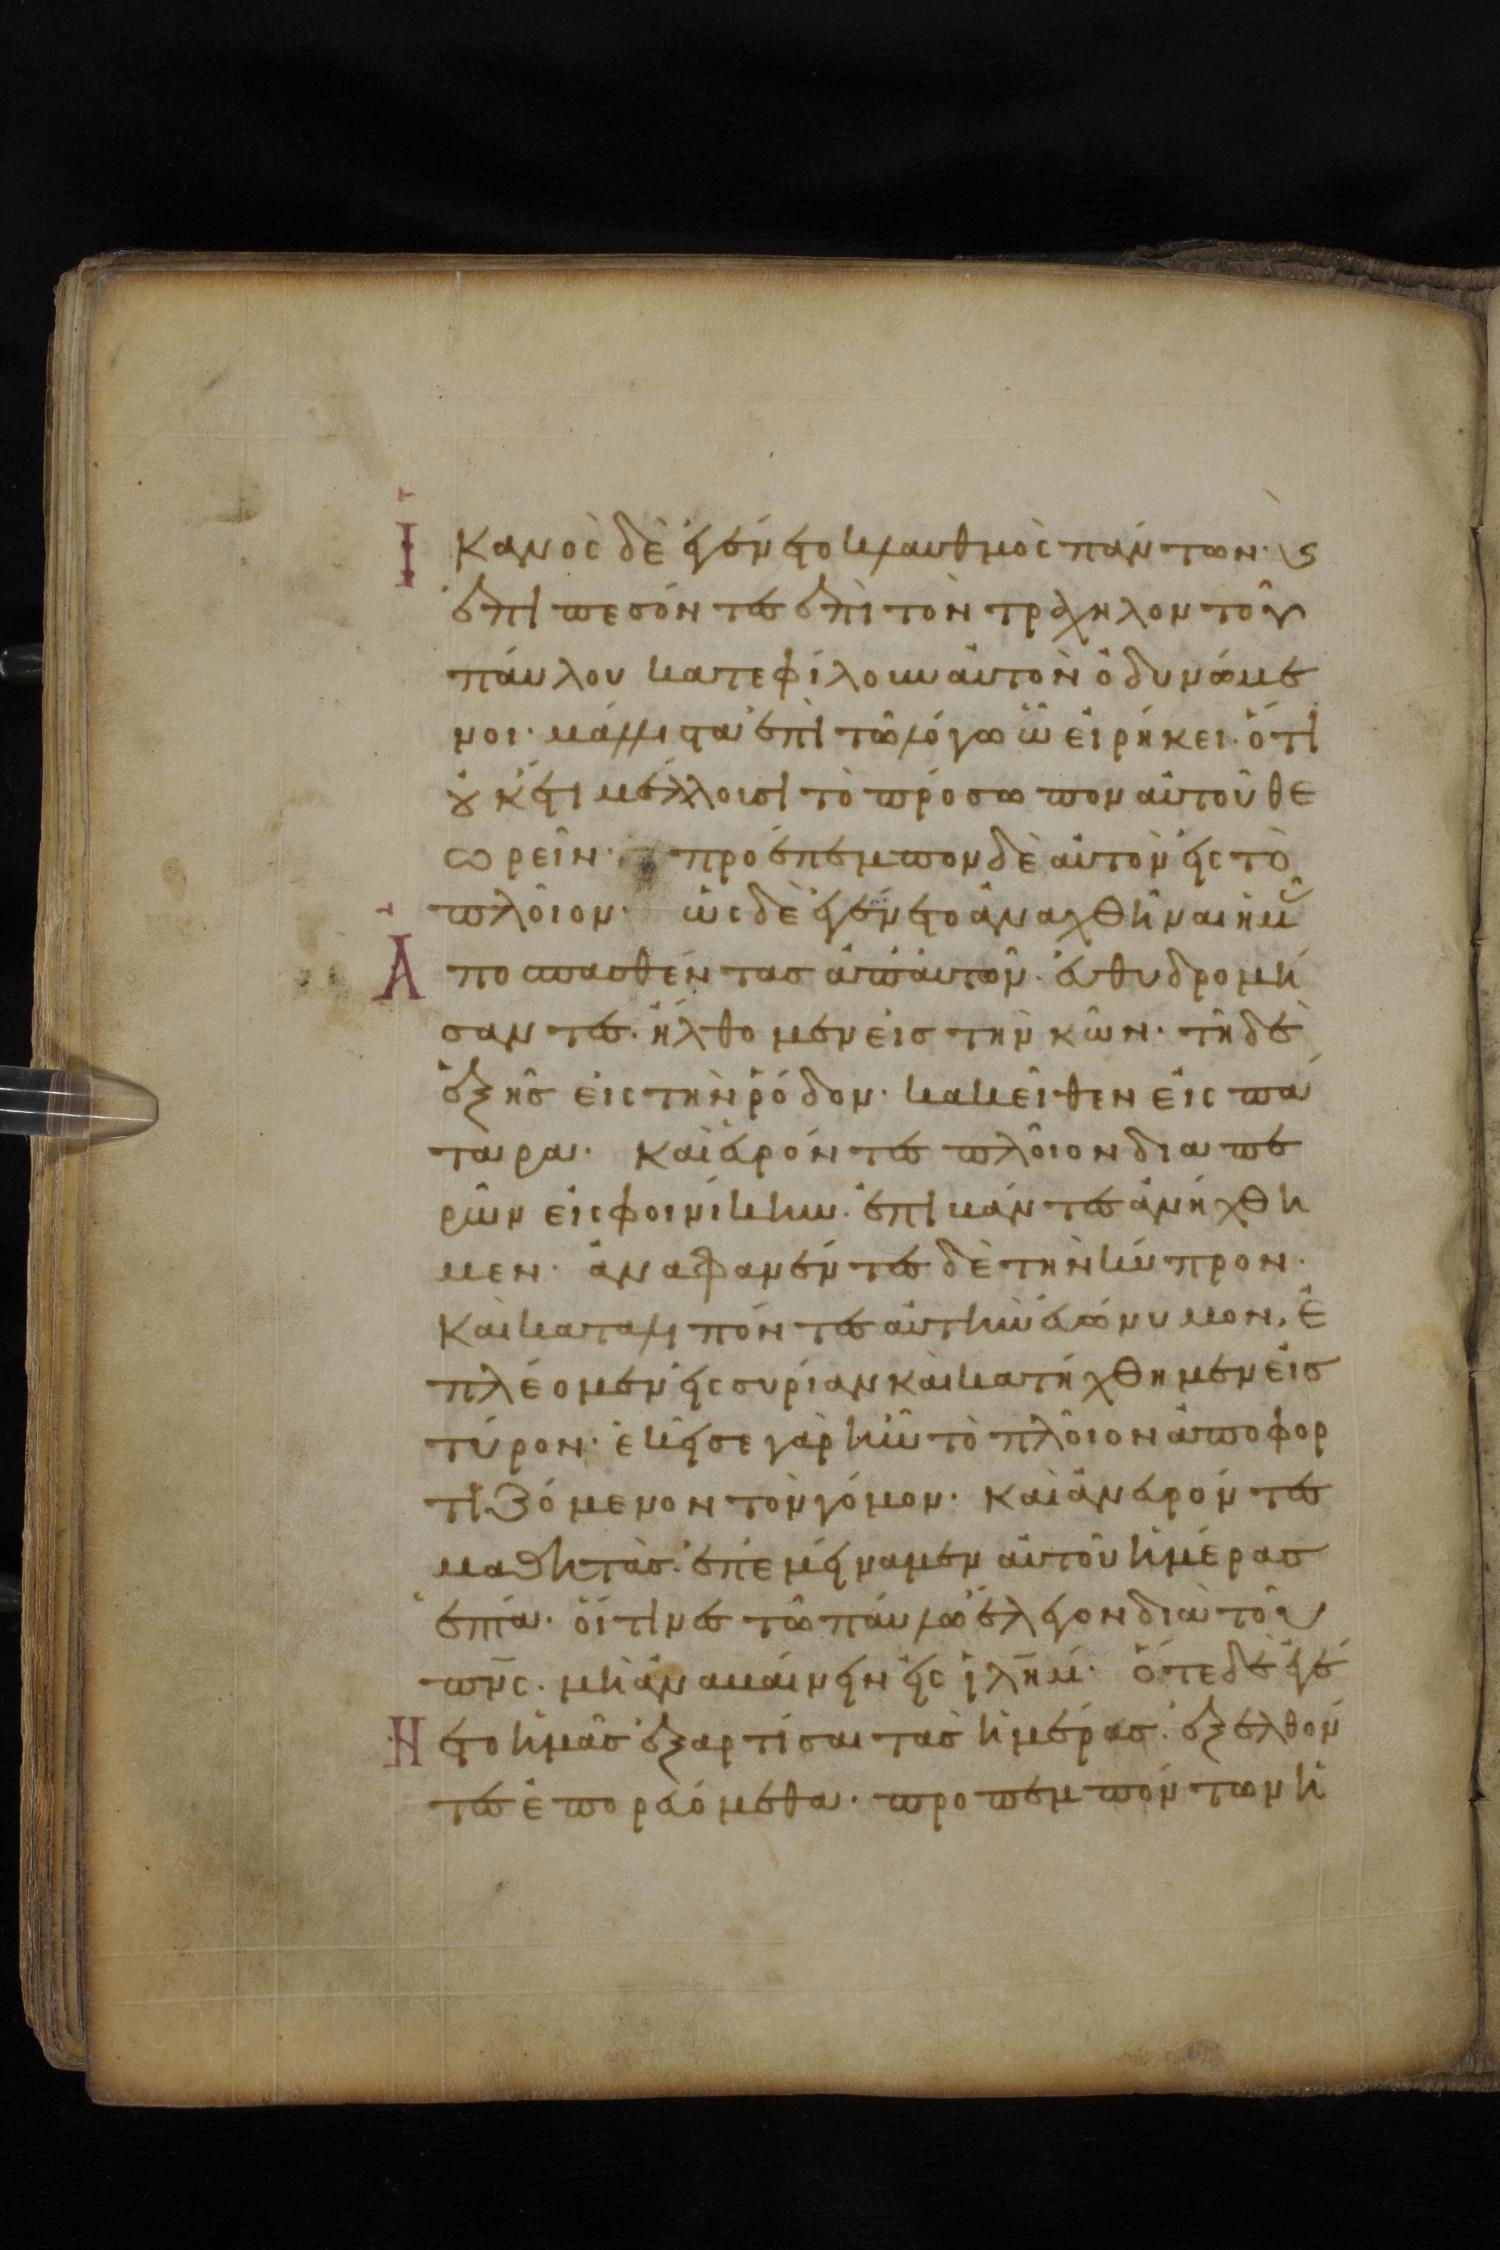 Ἱκανὸς δὲ ἐγένετο κλαυθμὸς πάντων· ϗ
ἐπιπεσόντες ἐπὶ τὸν τράχηλον τοῦ
παύλου κατεφίλουν αὐτὸν ὀδυνώμε
νοι· μάλλιστα ἐπὶ τῶ λόγω ὧ εἰρήκει· ὅτι
οὐκέτι μέλλουσι τὸ πρόσωπον αὐτοῦ θε
ωρεῖν· προέπεμπον δὲ αὐτὸν εἰς τὸ
πλοῖον· ὡς δὲ ἐγένετο ἀναχθῆναι ἡμᾶ
Ἀποσπασθέντας ἀπ' αὐτῶν· εὐθυδρομή
σαντες· ἤλθομεν εἰς τὴν κῶν· τῆ δὲ
ἑξῆς εἰς τὴν ῥόδον· κακεῖθεν εἰς πά
ταρα· καὶ εὑρόντες πλοῖον διαπε
ρῶν εἰς φοινίκην· ἐπιβάντες ἀνήχθη
μεν· ἀναφανέντες δὲ τὴν κύπρον·
Καὶ καταλιπόντες αὐτὴν εὐώνυμον, ἐ
πλέομεν εἰς συρίαν καὶ κατήχθημεν εἰς
τύρον· ἐκεῖσε γὰρ ἦν τὸ πλοῖον ἀποφορ
τιζόμενον τὸν γόμον· καὶ ἀνευρόντες
μαθητὰς· ἐπεμείναμεν αὐτοῦ ἡμέρας
ἑπτά· οἵτινες τῶ παύλω ἔλεγον διὰ τοῦ
πν̅ς· μὴ ἀναβαίνειν εἰς ἱλη̅μ· ὅτε δὲ ἐγέ
Νετο ἡμᾶς ἐξαρτίσαι τὰς ἡμέρας· ἐξελθόν
τες ἐπορευόμεθα· προπεμπόντων ἡ